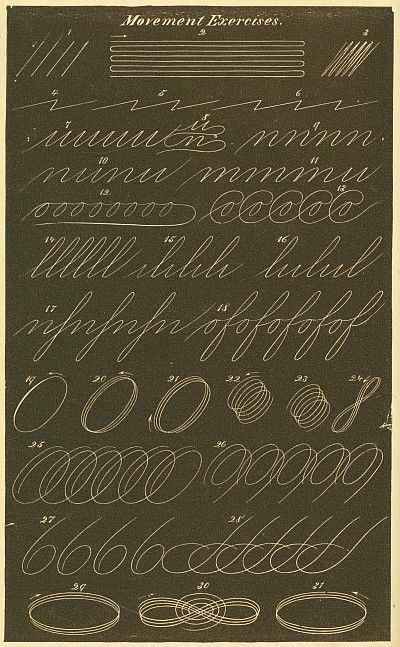 Movement Exercises.
1 2 3
4 5 6
7 8 9
10 11
12 13
14 15 16
17 18
19 20 21 22 23 24
25 26
27 28
29 30 31